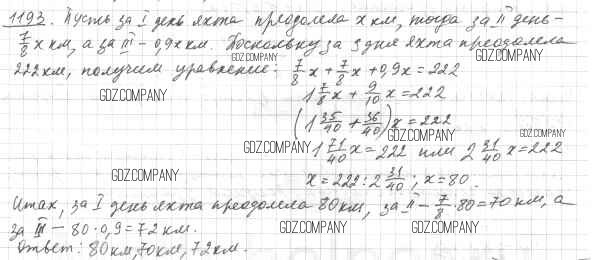 1193. Пусть за I день яхта преодолела x км, тогда за II день –
7/8 x км, а за III – 0,9x км. Поскольку за 3 дня яхта преодолела
222 км, получим уравнение: 7/8 x + 7/8 x + 0,9x = 222
GDZ.COMPANY
GDZ.COMPANY
GDZ.COMPANY
1 7/8 x + 9/10 x = 222
(1 35/40 + 36/40) x = 222
GDZ.COMPANY
GDZ.COMPANY
GDZ.COMPANY
1 71/40 x = 222 или 2 31/40 x = 222
GDZ.COMPANY
x = 222 : 2 31/40 ; x = 80.
Итак, за I день яхта преодолела 80 км, за II – 7/8 · 80 = 70 км, а
за III – 80 · 0,9 = 72 км.
GDZ.COMPANY
GDZ.COMPANY
Ответ: 80 км, 70 км, 72 км.